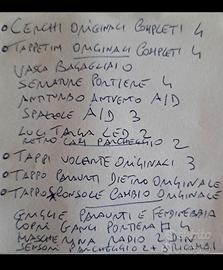 CERCHI ORIGINALI COMPLETI 4
TAPPETINI ORIGINALI COMPLETI 4
VASCA BAGAGLIAIO
SERRATURE PORTIERE 4
ANTITURBO ANTVENTO A/D
SPAZZOLE A/D 3
LUCI TARGA LED 2
RETRO CAM PARCHEGGIO 2
TAPPI VOLANTE ORIGINALI 3
TAPPO PARAURTI DIETRO ORIGINALE
TAPPO CONSOLE CAMBIO ORIGINALE
GRIGLIE PARAURTI E FENDINEBBIA
COPRI GANCI PORTIERA 4
MASCHERINA RADIO 2 DIN
SENSORI PARCHEGGIO 2 + 3 RICAMBI